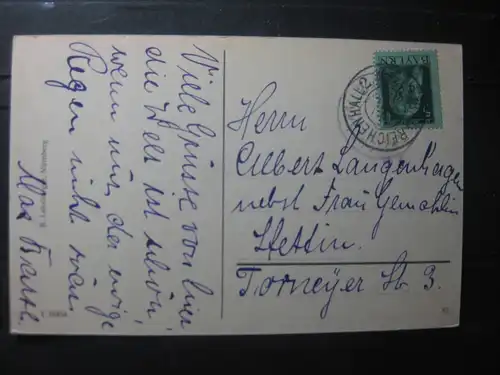 Viele Grüße von hier
die Welt ist schön,
wenn nur der ewige
Regen nicht wär.
Max
Herrn
Albert Langenhagen
nebst Frau Gemahlin
Stettin.
Torneyer Str 3.
BAYERN
REICHENHALL 2